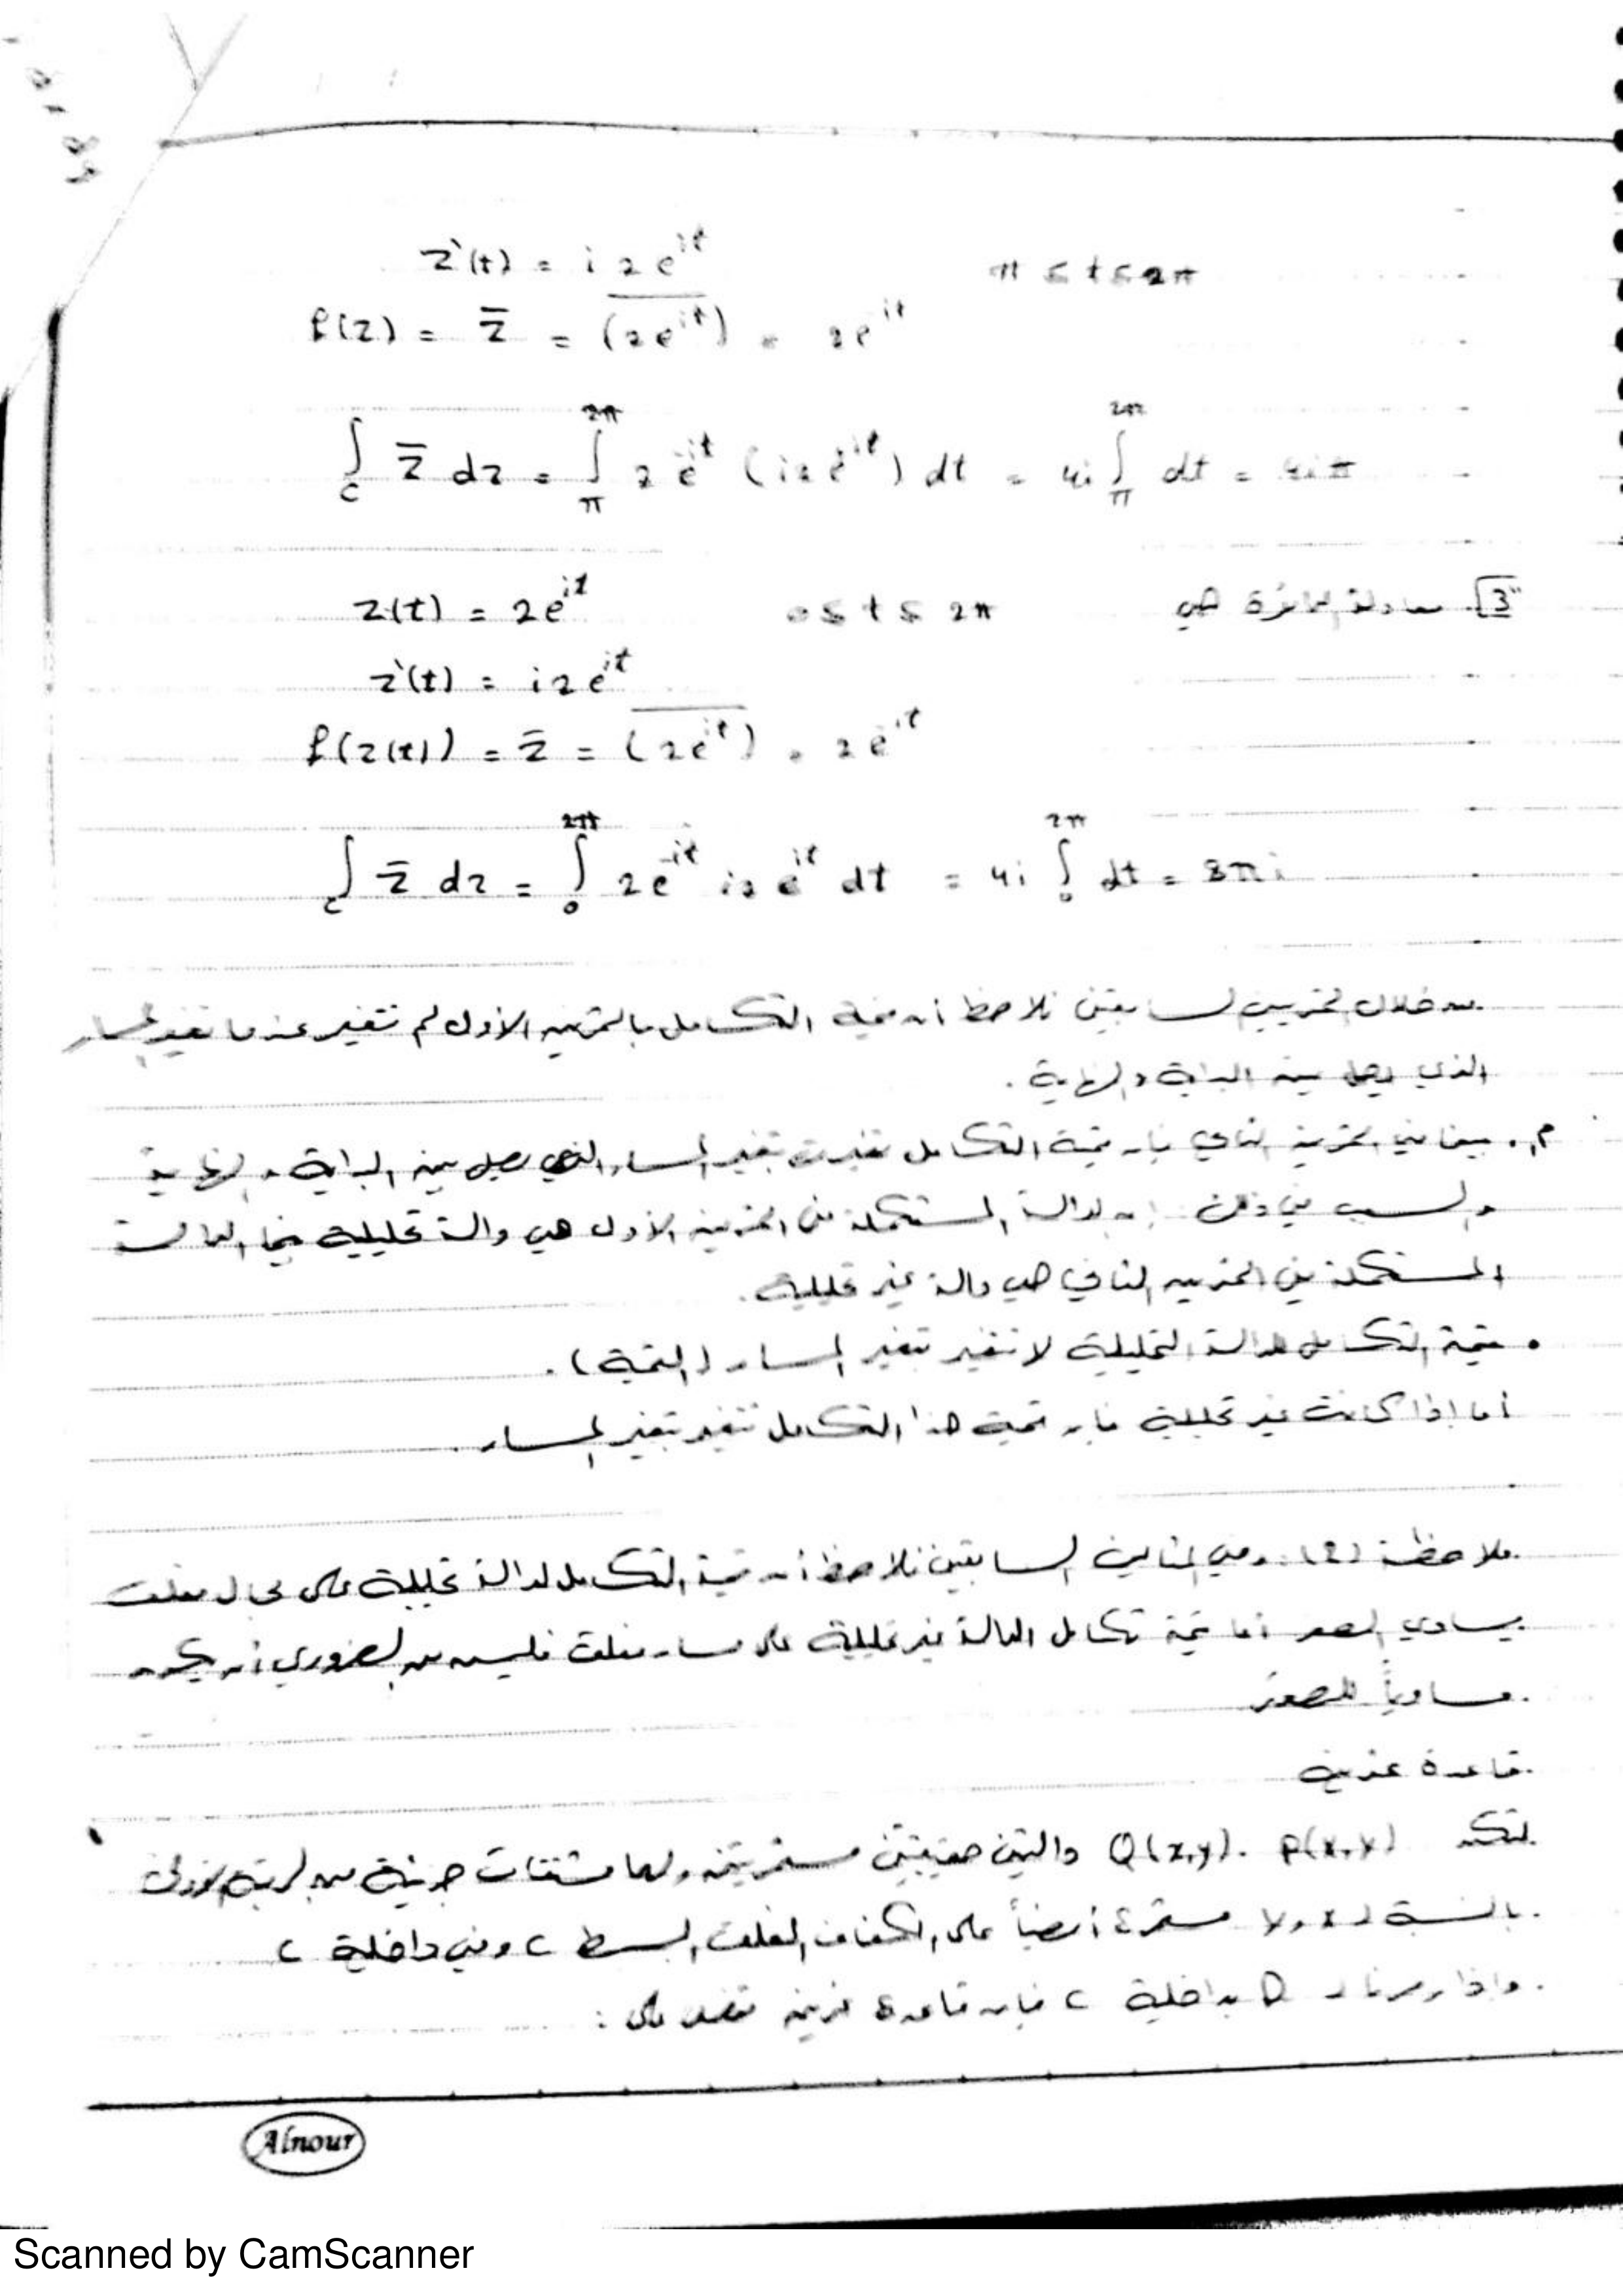 z`(t) = i 2 e^{it}    π ≤ t ≤ 2π
f(z) = \overline{z} = \overline{(2e^{it})} = 2e^{it}
∫_c \overline{z} dz = ∫_π^{2π} 2 e^{-it} (i 2 e^{it}) dt = 4i ∫_π^{2π} dt = 4iπ
[3] معادلة الدائرة هي    z(t) = 2e^{it}    0 ≤ t ≤ 2π
z`(t) = i2e^{it}
f(z(t)) = \overline{z} = \overline{(2e^{it})} = 2e^{it}
∫_c \overline{z} dz = ∫_0^{2π} 2e^{-it} i2 e^{it} dt = 4i ∫_0^{2π} dt = 8πi
من خلال التمرينين السابقين نلاحظ أن قيمة التكامل بالتمرين الأول لم تتغير عندما تغير المسار
الذي يصل بين البداية والنهاية .
م. بينما في التمرين الثاني فإن قيمة التكامل تغيرت بتغير المسار الذي يصل بين البداية والنهاية
والسبب في ذلك إن الدالة المستكملة في التمرين الأول هي دالة تحليلية بينما الدالة
المستكملة في التمرين الثاني هي دالة غير تحليلية .
• قيمة التكامل للدالة التحليلية لا تتغير بتغير المسار ( ) .
أما إذا كانت غير تحليلية فإن قيمة هذا التكامل تتغير بتغير المسار .
ملاحظة (2): في المثالين السابقين نلاحظ أن قيمة التكامل لدالة تحليلية على مجال مغلق
يساوي الصفر أما قيمة تكامل الدالة غير تحليلية على مسار مغلق فليس من الضروري أن يكون
مساوياً للصفر
قاعدة غرين
لتكن P(x,y) . Q(x,y) دالتين حقيقيتين مستمرتين ولهما مشتقات جزئية من الرتبة الأولى
بالنسبة لـ x و y مستمرة أيضاً على الكفاف المغلق البسيط C وفي داخلية C
وإذا رمزنا لـ D بداخلية C فإن قاعدة غرين تنص على :
Alnour
Scanned by CamScanner